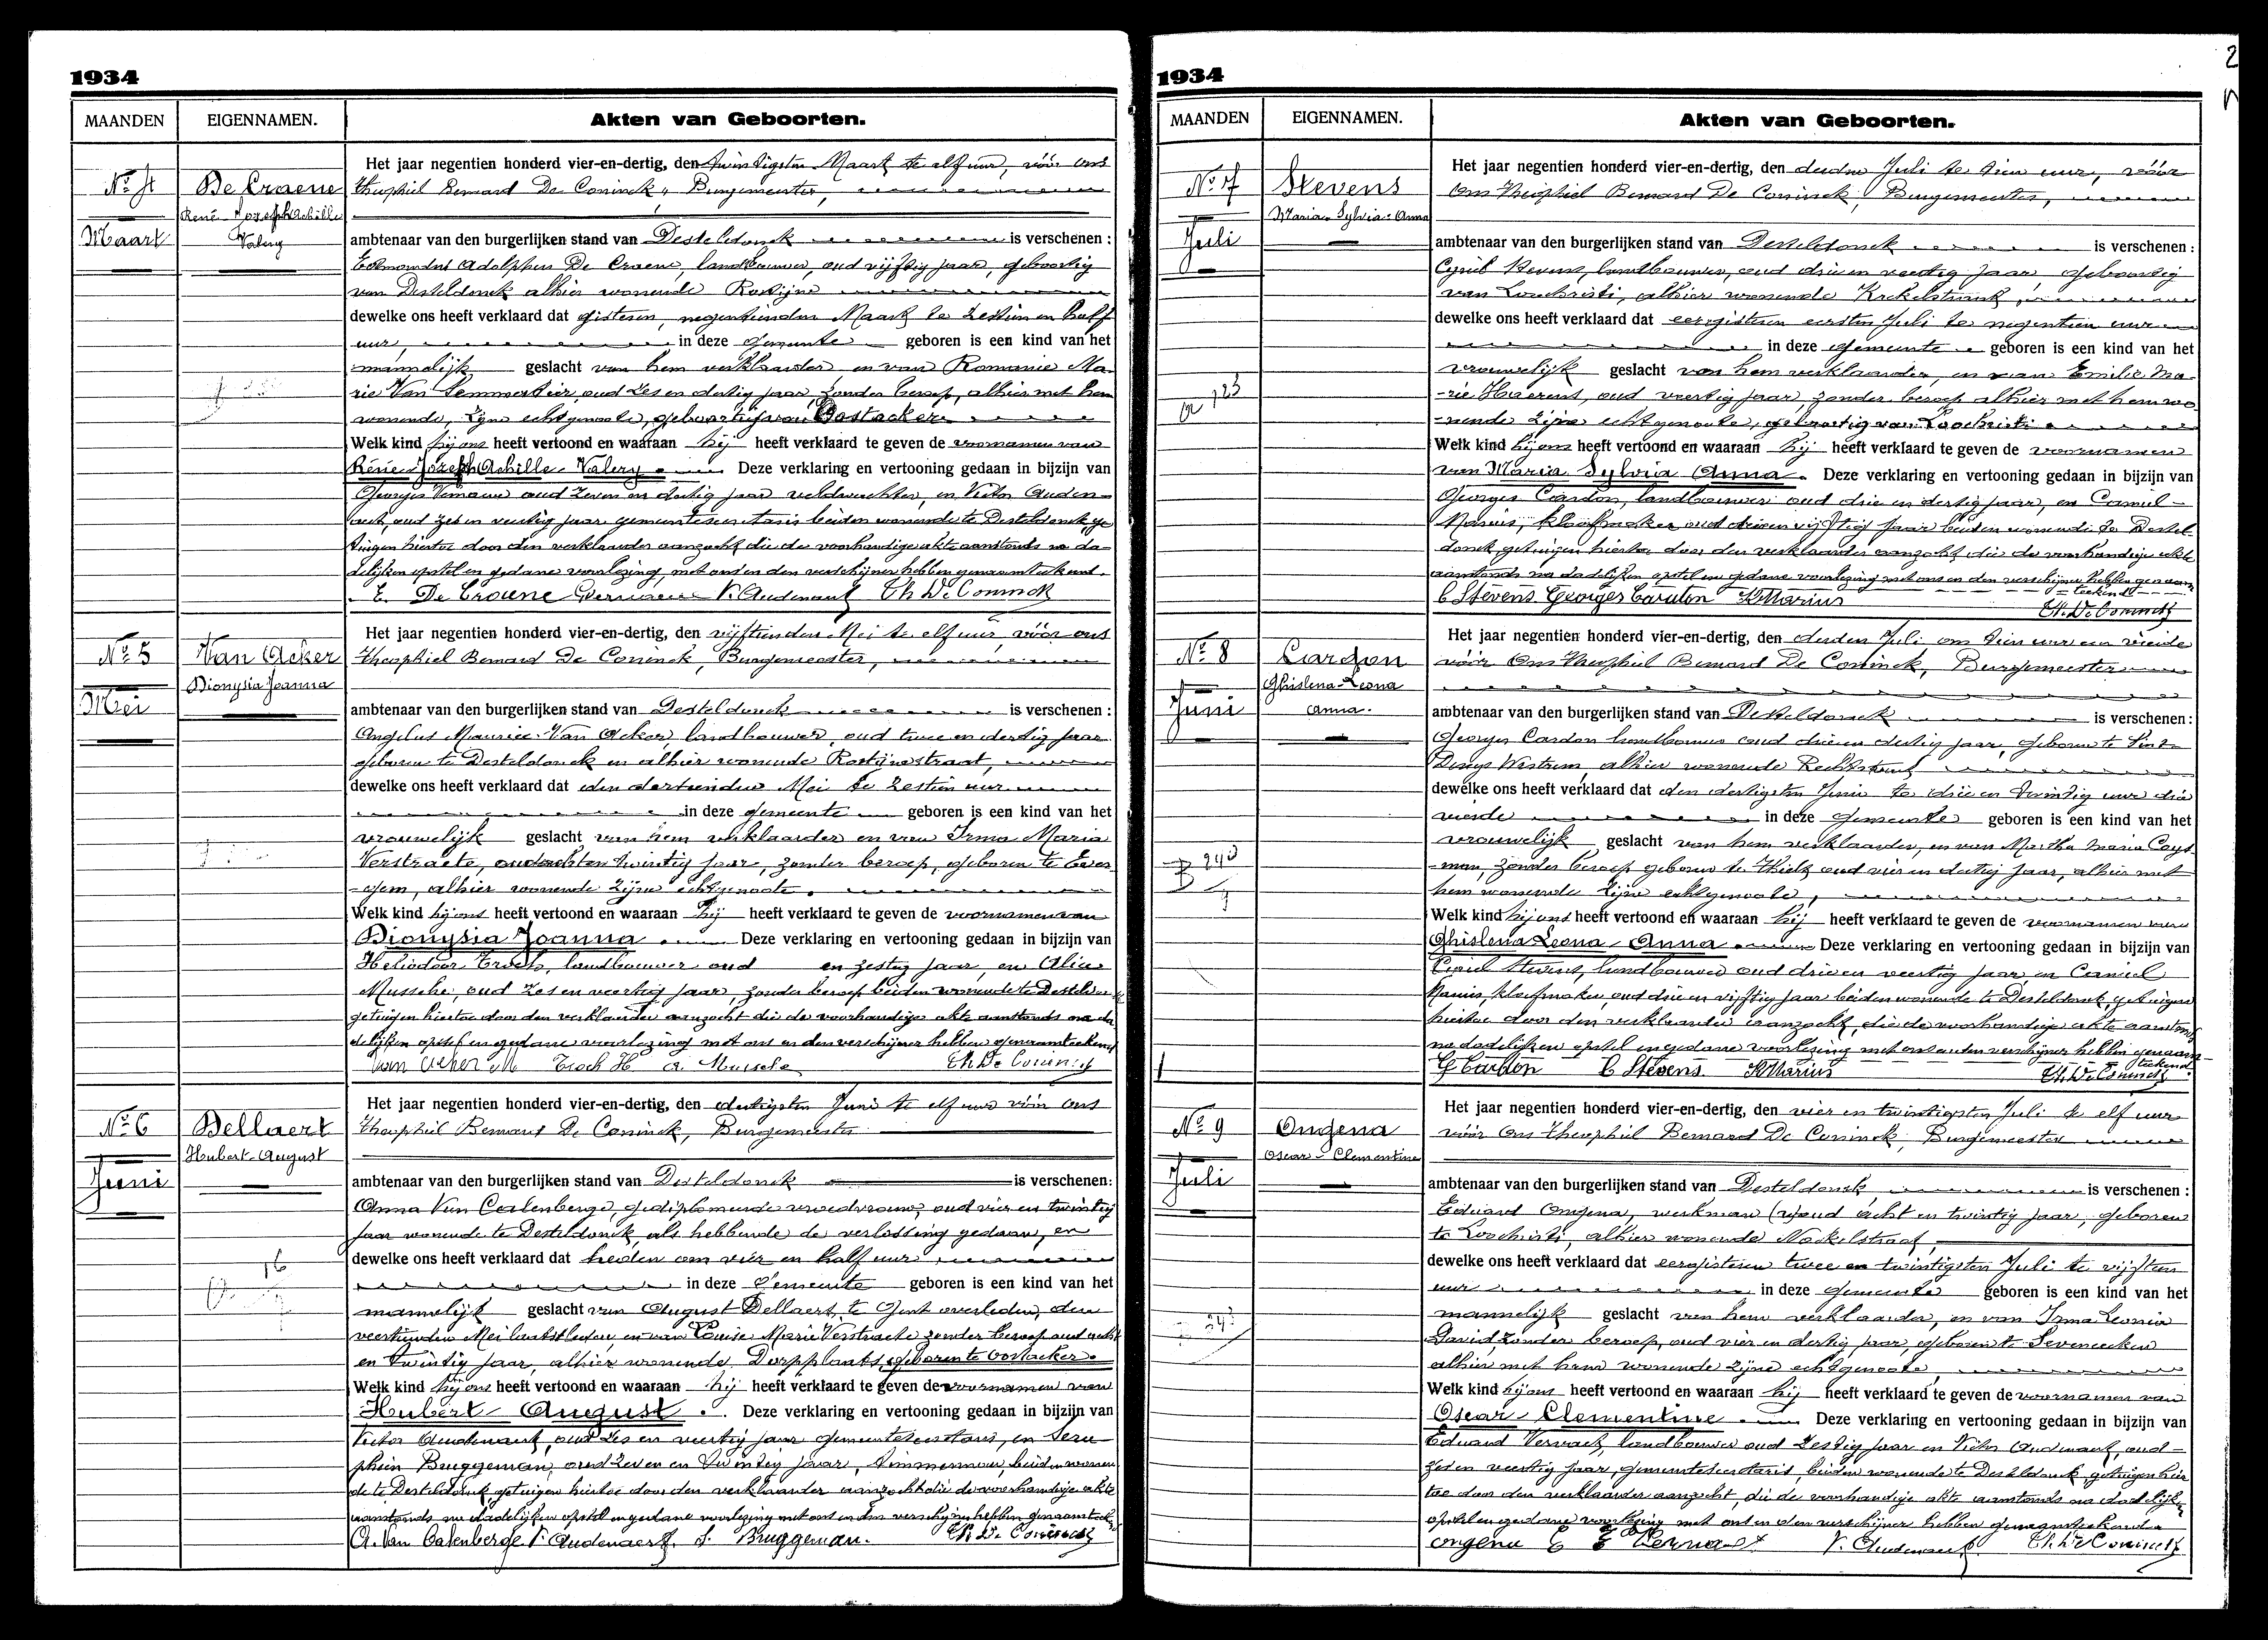 1934
MAANDEN
EIGENNAMEN.
Akten van Geboorten.
Nº 4
De Craene
René Jozeph Achille
Valery
Maart
Het jaar negentien honderd vier-en-dertig, den twintigsten Maart te elf uur, vóór ons
Theophiel Bernard De Coninck, Burgemeester,
ambtenaar van den burgerlijken stand van Desteldonck is verschenen :
Edmondus Adolphus De Craene, landbouwer, oud vijftig jaar, geboortig
van Desteldonck alhier wonende Rostijne
dewelke ons heeft verklaard dat gisteren, negentienden Maart te zestien en half
uur, in deze gemeente geboren is een kind van het
mannelijk geslacht van hem verklaarder en van Romanie Ma-
rie Van oud zes en dertig jaar, zonder beroep, alhier met hem
wonende, zijne echtgenoote, geboortig van Oostacker
Welk kind hij ons heeft vertoond en waaraan hij heeft verklaard te geven de voornamen van
René Jozeph Achille Valery Deze verklaring en vertooning gedaan in bijzijn van
Georges oud zeven en dertig jaar veldwachter, en Victor Auden-
aert, oud zes en veertig jaar gemeentesecretaris beiden wonende te Desteldonck, ge
tuigen hiertoe door den verklaarder aanzocht die de voorhandige akte aanstonds na da-
delijken opstel en gedane voorlezing, met ons en den verschijner hebben genaamteekend.
E. De Craene V. Audenaert Th De Coninck
Nº 5
Van Acker
Dionysia Joanna
Mei
Het jaar negentien honderd vier-en-dertig, den vijftienden Mei te elf uur, vóór ons
Theophiel Bernard De Coninck, Burgemeester,
ambtenaar van den burgerlijken stand van Desteldonck is verschenen :
Angelus Maurice Van Acker, landbouwer, oud twee en dertig jaar
geboren te Desteldonck en alhier wonende Rostijnestraat,
dewelke ons heeft verklaard dat den dertienden Mei te zestien uur
in deze gemeente geboren is een kind van het
vrouwelijk geslacht van hem verklaarder en van Irma Maria
Verstraete, oud acht en twintig jaar, zonder beroep, geboren te Ever-
-gem, alhier wonende zijne echtgenoote.
Welk kind hij ons heeft vertoond en waaraan hij heeft verklaard te geven de voornamen van
Dionysia Joanna. Deze verklaring en vertooning gedaan in bijzijn van
Heliodoor Troch, landbouwer oud en zestig jaar, en Alice
Mussche, oud zes en veertig jaar, zonder beroep beiden wonende te Desteldonck
getuigen hiertoe door den verklaarder aanzocht die de voorhandige akte aanstonds na da
delijken opstel en gedane voorlezing met ons en den verschijner hebben genaamteekend
Van Acker M Troch H A. Mussche Th. De Coninck
Nº 6
Dellaert
Hubert August
Juni
16
Het jaar negentien honderd vier-en-dertig, den dertigsten Juni te elf uur vóór ons
Theophiel Bernard De Coninck, Burgemeester
ambtenaar van den burgerlijken stand van Desteldonck is verschenen:
Anna Van Calenberge, gediplomeerde vroedvrouw, oud vier en twintig
jaar wonende te Desteldonck, als hebbende de verlossing gedaan, en
dewelke ons heeft verklaard dat heden om vier en half uur
in deze Gemeente geboren is een kind van het
mannelijk geslacht van August Dellaert, te Gent overleden, den
veertienden Mei laatstleden, en van Louise Marie Verstraete zonder beroep oud acht
en twintig jaar, alhier wonende Dorpplaats, geboren te Oostacker.
Welk kind hij ons heeft vertoond en waaraan hij heeft verklaard te geven de voornamen van
Hubert August. Deze verklaring en vertooning gedaan in bijzijn van
Victor Audenaert, oud zes en veertig jaar gemeentesecretaris, en Sera-
phien Bruggeman, oud zeven en twintig jaar, timmerman, beiden wonen
de te Desteldonck, getuigen hiertoe door den verklaarder aanzocht die de voorhandige akte
aanstonds na dadelijken opstel en gedane voorlezing met ons en den verschijner hebben genaamteek
A. Van Calenberge V. Audenaert S. Bruggeman. Th De Coninck
1934
2
MAANDEN
EIGENNAMEN.
Akten van Geboorten.
Nº 7
Stevens
Maria Sylvia Anna
Juli
Het jaar negentien honderd vier-en-dertig, den derden Juli te tien uur, vóór
Ons Theophiel Bernard De Coninck, Burgemeester,
ambtenaar van den burgerlijken stand van Desteldonck is verschenen :
Cyriel Stevens, landbouwer, oud drie en veertig jaar, geboortig
van Loochristi, alhier wonende Krekelstraat,
dewelke ons heeft verklaard dat eergisteren eersten Juli te negentien uur
in deze gemeente geboren is een kind van het
vrouwelijk geslacht van hem verklaarder, en van Emilie Ma-
-rie Haerens, oud veertig jaar, zonder beroep alhier met hem wo-
-nende zijne echtgenoote, geboortig van Loochristi
Welk kind hij ons heeft vertoond en waaraan hij heeft verklaard te geven de voornamen
van Maria Sylvia Anna. Deze verklaring en vertooning gedaan in bijzijn van
Georges Cardon, landbouwer oud drie en dertig jaar, en Camiel
Marius, kloefmaker oud drie en vijftig jaar beiden wonende te Destel-
donck, getuigen hiertoe door den verklaarder aanzocht, die de voorhandige akte
aanstonds na dadelijken opstel en gedane voorlezing met ons en den verschijner hebben genaam
teekend
C Stevens Georges Cardon K Marius Th. De Coninck
Nº 8
Cardon
Ghislena Leona
Anna.
Juni
Het jaar negentien honderd vier-en-dertig, den derden Juli om tien uur een vierde
vóór Ons Theophiel Bernard De Coninck, Burgemeester
ambtenaar van den burgerlijken stand van Desteldonck is verschenen :
Georges Cardon landbouwer oud drie en dertig jaar, geboren te Sint-
Denys Westrem, alhier wonende Rechtstraat
dewelke ons heeft verklaard dat den dertigsten Juni te drie en twintig uur drie
vierde in deze gemeente geboren is een kind van het
vrouwelijk geslacht van hem verklaarder, en van Martha Maria Coys
-man, zonder beroep geboren te Thielt oud vier en dertig jaar, alhier met
hem wonende zijne echtgenoote,
Welk kind hij ons heeft vertoond en waaraan hij heeft verklaard te geven de voornamen van
Ghislena Leona Anna Deze verklaring en vertooning gedaan in bijzijn van
Cyriel Stevens, landbouwer oud drie en veertig jaar en Camiel
Marius, kloefmaker, oud drie en vijftig jaar beiden wonende te Desteldonck, getuigen
hiertoe door den verklaarder aanzocht, die de voorhandige akte aanstonds
na dadelijken opstel en gedane voorlezing met ons en den verschijner hebben genaam-
teekend.
G Cardon C Stevens K Marius Th. De Coninck
Nº 9
Ongena
Oscar Clementine
Juli
Het jaar negentien honderd vier-en-dertig, den vier en twintigsten Juli te elf uur
vóór Ons Theophiel Bernard De Coninck, Burgemeester
ambtenaar van den burgerlijken stand van Desteldonck is verschenen :
Eduard Ongena, werkman oud acht en twintig jaar, geboren
te Loochristi, alhier wonende Nackelstraat,
dewelke ons heeft verklaard dat eergisteren twee en twintigsten Juli te vijftien
uur in deze gemeente geboren is een kind van het
mannelijk geslacht van hem verklaarder, en van Irma Leonia
David, zonder beroep, oud vier en dertig jaar, geboren te Seveneecken
alhier met hem wonende zijne echtgenoote
Welk kind hij ons heeft vertoond en waaraan hij heeft verklaard te geven de voornamen van
Oscar Clementine Deze verklaring en vertooning gedaan in bijzijn van
Eduard Vervaet, landbouwer oud zestig jaar en Victor Audenaert, oud
zes en veertig jaar, gemeentesecretaris, beiden wonende te Desteldonck, getuigen hier
toe door den verklaarder aanzocht, die de voorhandige akte aanstonds na dadelijken
opstel en gedane voorlezing met ons en den verschijner hebben genaamteekend
ongena E E Vervaet V. Audenaert Th. De Coninck